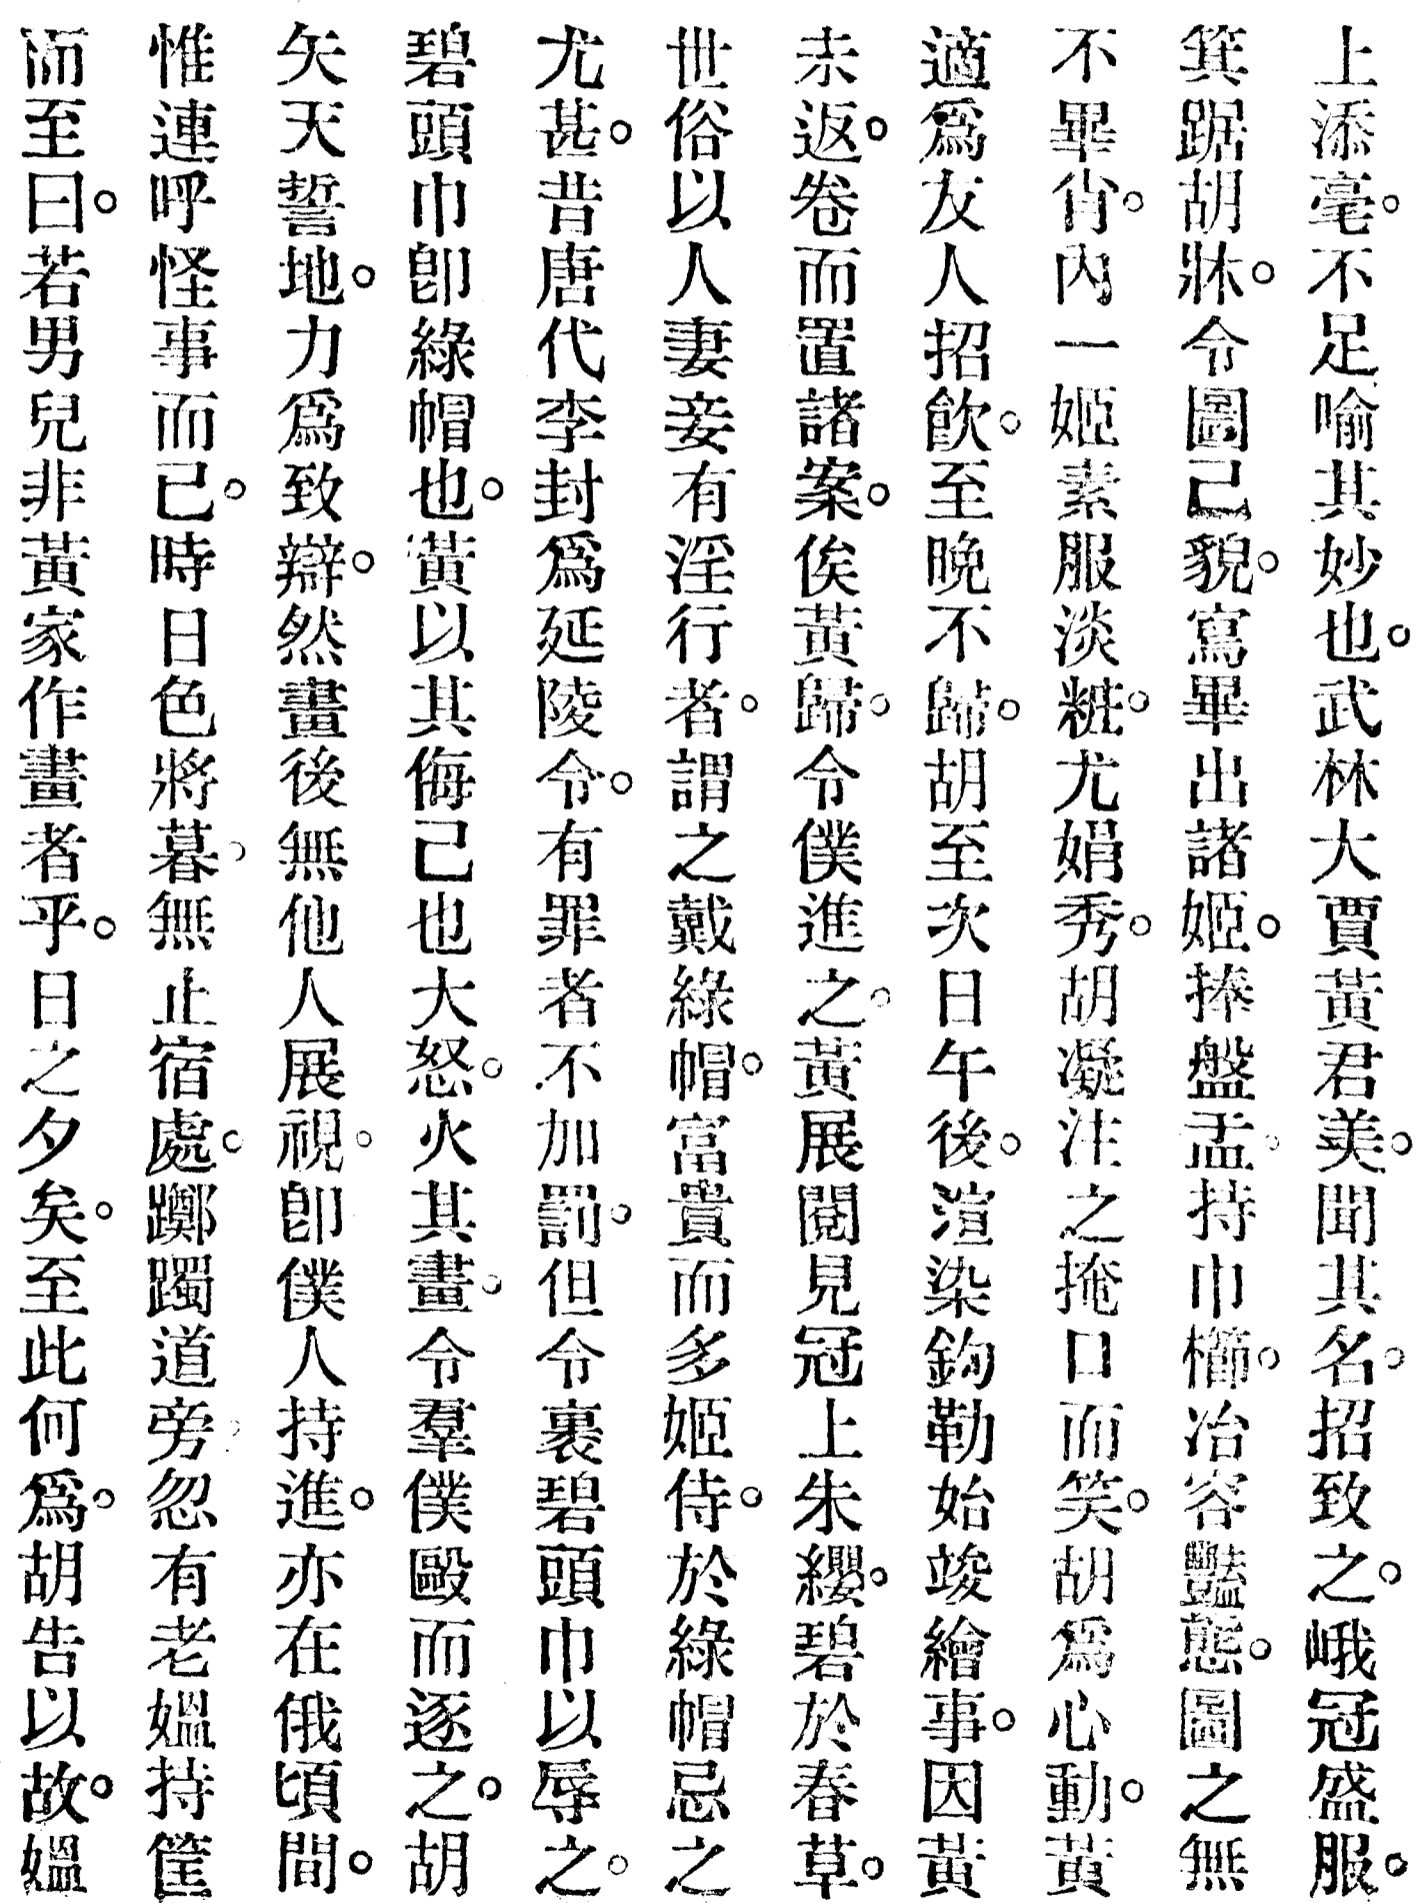 上添毫。不足喻其妙也。武林大賈黃君美。聞其名。招致之。峨冠盛服。
箕踞胡牀。令圖己貌。寫畢出諸姬。捧盤盂。持巾櫛。冶容豔態。圖之無
不畢肖。內一姬素服淡粧。尤娟秀。胡凝注之掩口而笑。胡爲心動。黃
適爲友人招飮。至晩不歸。胡至次日午後。渲染鉤勒始竣繪事。因黃
未返。卷而置諸案。俟黃歸。令僕進之。黃展閱見冠上朱纓。碧於春草。
世俗以人妻妾有淫行者。謂之戴綠帽。富貴而多姬侍。於綠帽忌之
尤甚。昔唐代李封爲延陵令。有罪者不加罰。但令裹碧頭巾以辱之。
碧頭巾卽綠帽也。黃以其侮己也大怒。火其畫。令羣僕毆而逐之。胡
矢天誓地。力爲致辯。然畫後無他人展視。卽僕人持進。亦在俄頃間。
惟連呼怪事而已。時日色將暮。無止宿處。躑躅道旁。忽有老媼持筐
而至曰。若男兒非黃家作畫者乎。日之夕矣。至此何爲。胡告以故。媼